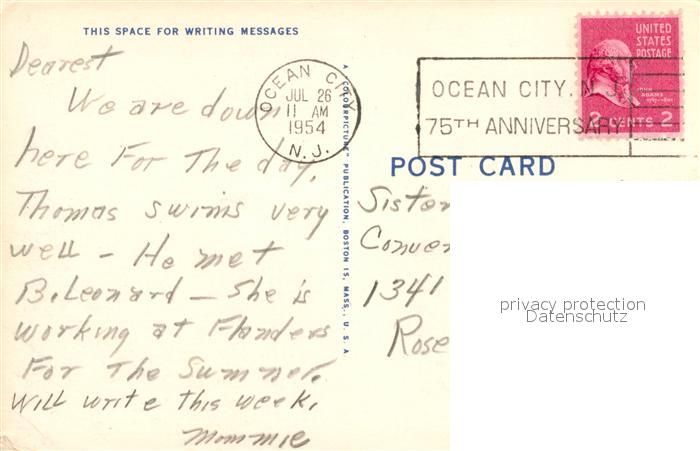 THIS SPACE FOR WRITING MESSAGES
Dearest
We are down
here For The day,
Thomas swims very
well - He met
B. Leonard - She is
working at Flanders
For The Summer.
Will write this week.
Mommie
A "COLORPICTURE" PUBLICATION, BOSTON 15, MASS., U. S. A
OCEAN CITY
JUL 26
11 AM
1954
N.J.
OCEAN CITY, N.J.
75TH ANNIVERSARY
UNITED
STATES
POSTAGE
JOHN
ADAMS
2 CENTS 2
POST CARD
Sister
Conven
1341
Rose
privacy protection
Datenschutz